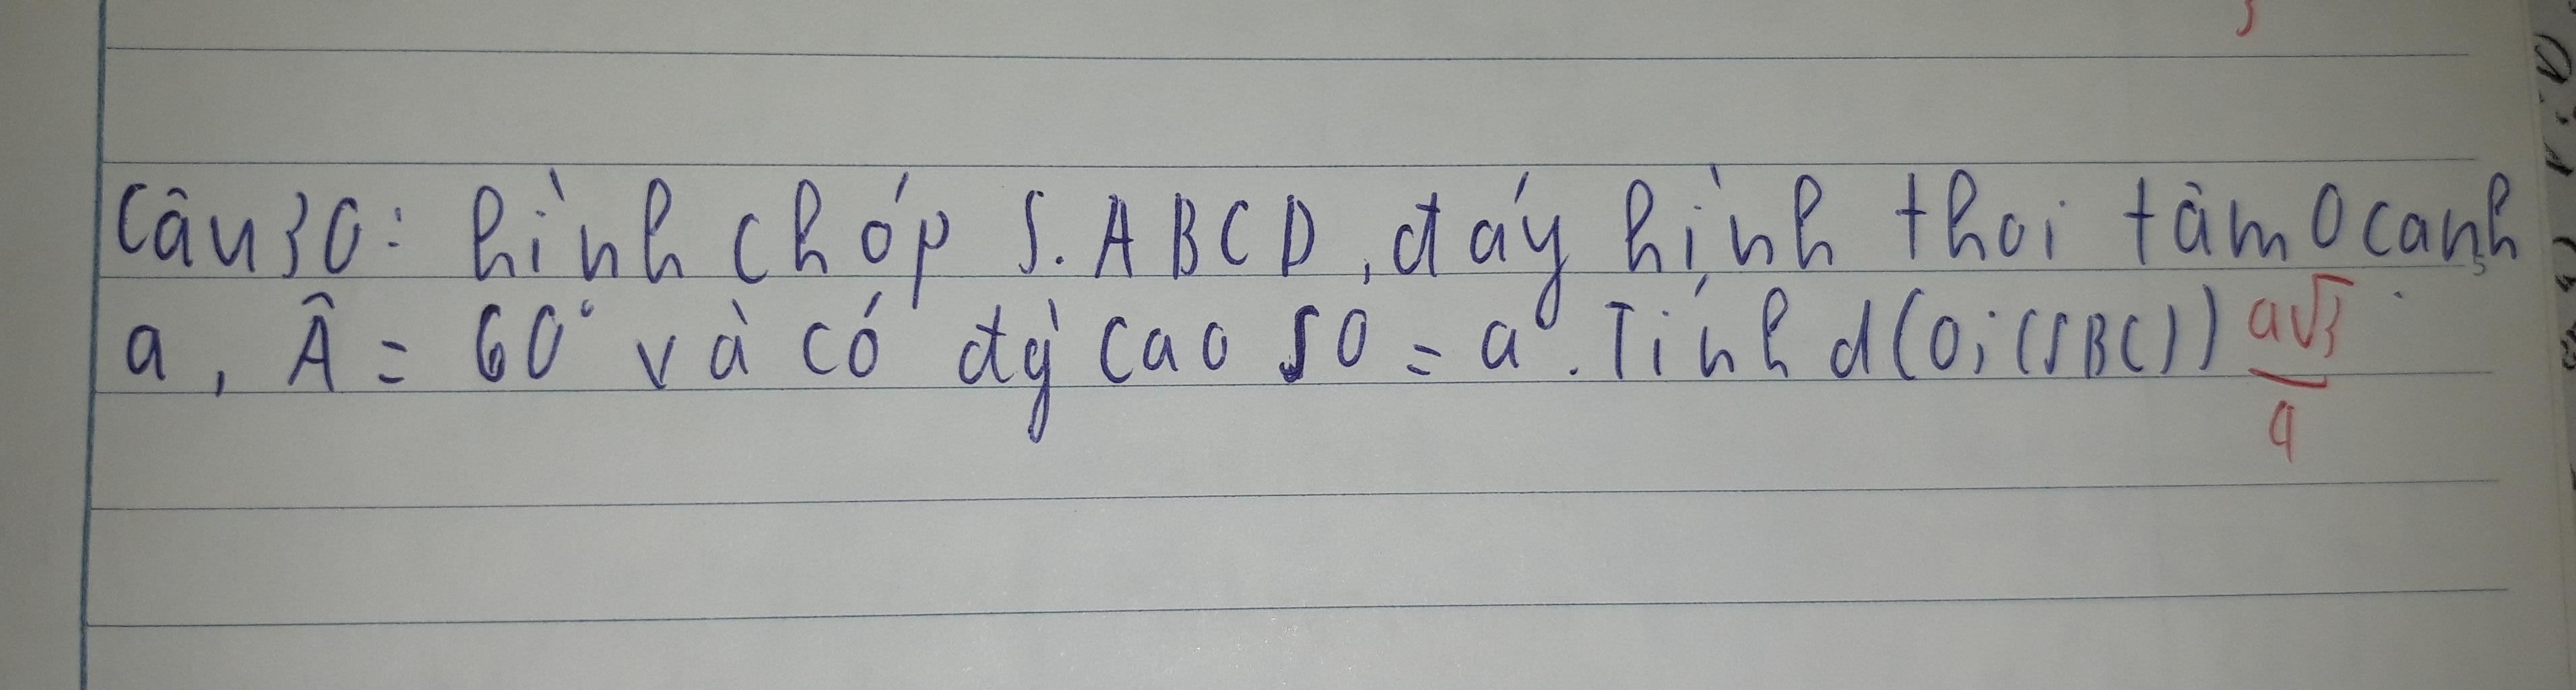 Câu 30: hình chóp S.ABCD, đáy hình thoi tâm O cạnh
a, Â = 60° và có đg cao SO = a. Tính d(O;(SBC)) a√3/4